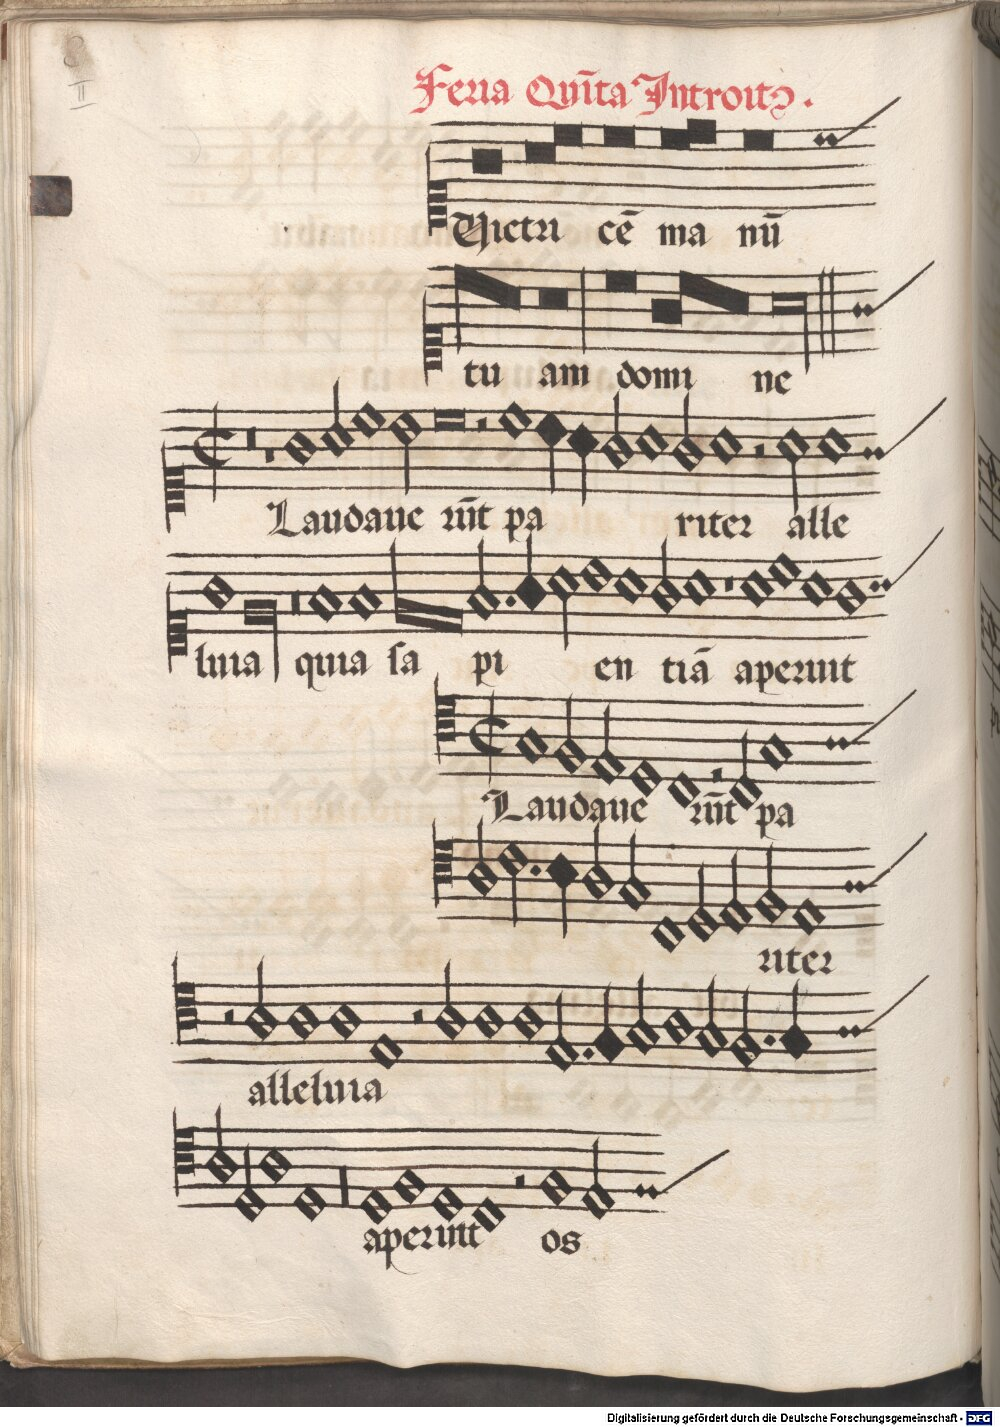 II
Feria Qui̅ta Introitꝰ.
Victri ce̅ ma nu̅
tu am domi ne
Laudaue ru̅t pa riter alle
luia quia sa pi en tia̅ aperuit
Laudaue ru̅t pa
riter
alleluia
aperuit os
Digitalisierung gefördert durch die Deutsche Forschungsgemeinschaft - DFG